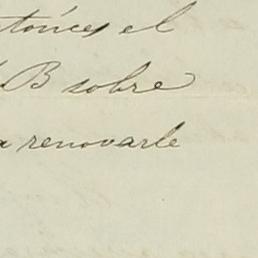 tónces el
B sobre
a renovarle